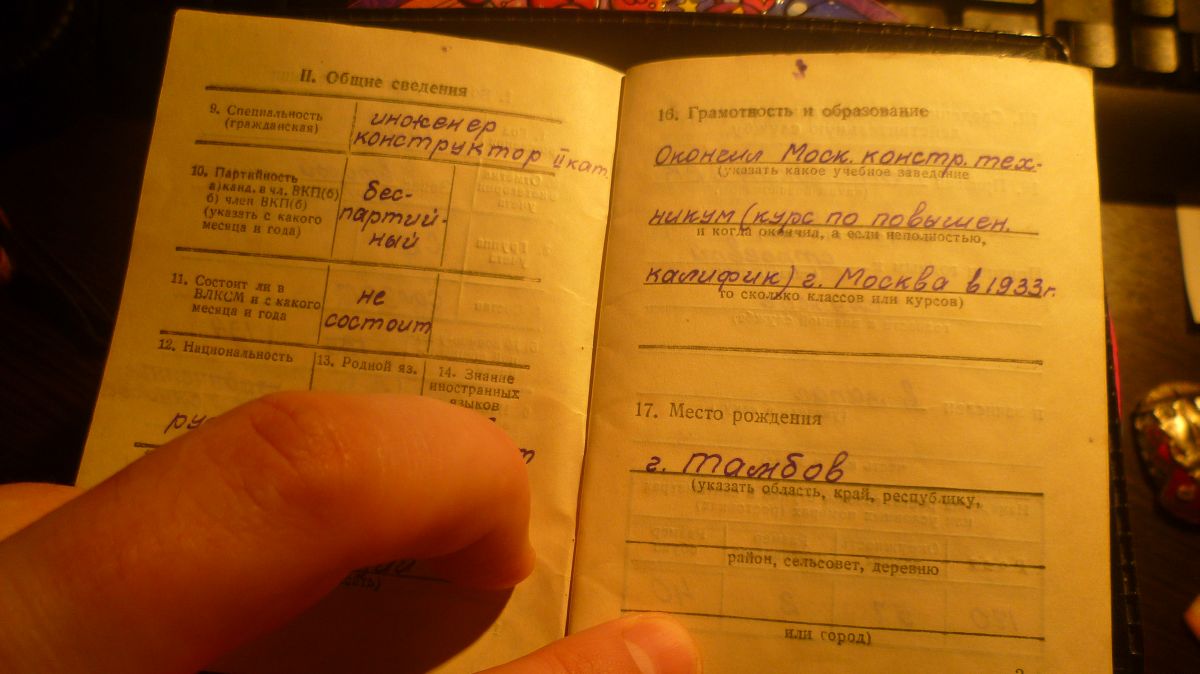 II. Общие сведения
9. Специальность
(гражданская)
инженер
конструктор II кат.
10. Партийность
а) канд. в чл. ВКП(б)
б) член ВКП(б)
(указать с какого
месяца и года)
бес-
партий-
ный
11. Состоит ли в
ВЛКСМ и с какого
месяца и года
не
состоит
12. Национальность
13. Родной яз.
14. Знание
иностранных
языков
16. Грамотность и образование
Окончил Моск. констр. тех-
(указать какое учебное заведение
никум (курс по повышен.
и когда окончил, а если неполностью,
калифик) г. Москва в 1933 г.
то сколько классов или курсов)
17. Место рождения
г. Тамбов
(указать область, край, республику,
район, сельсовет, деревню
или город)